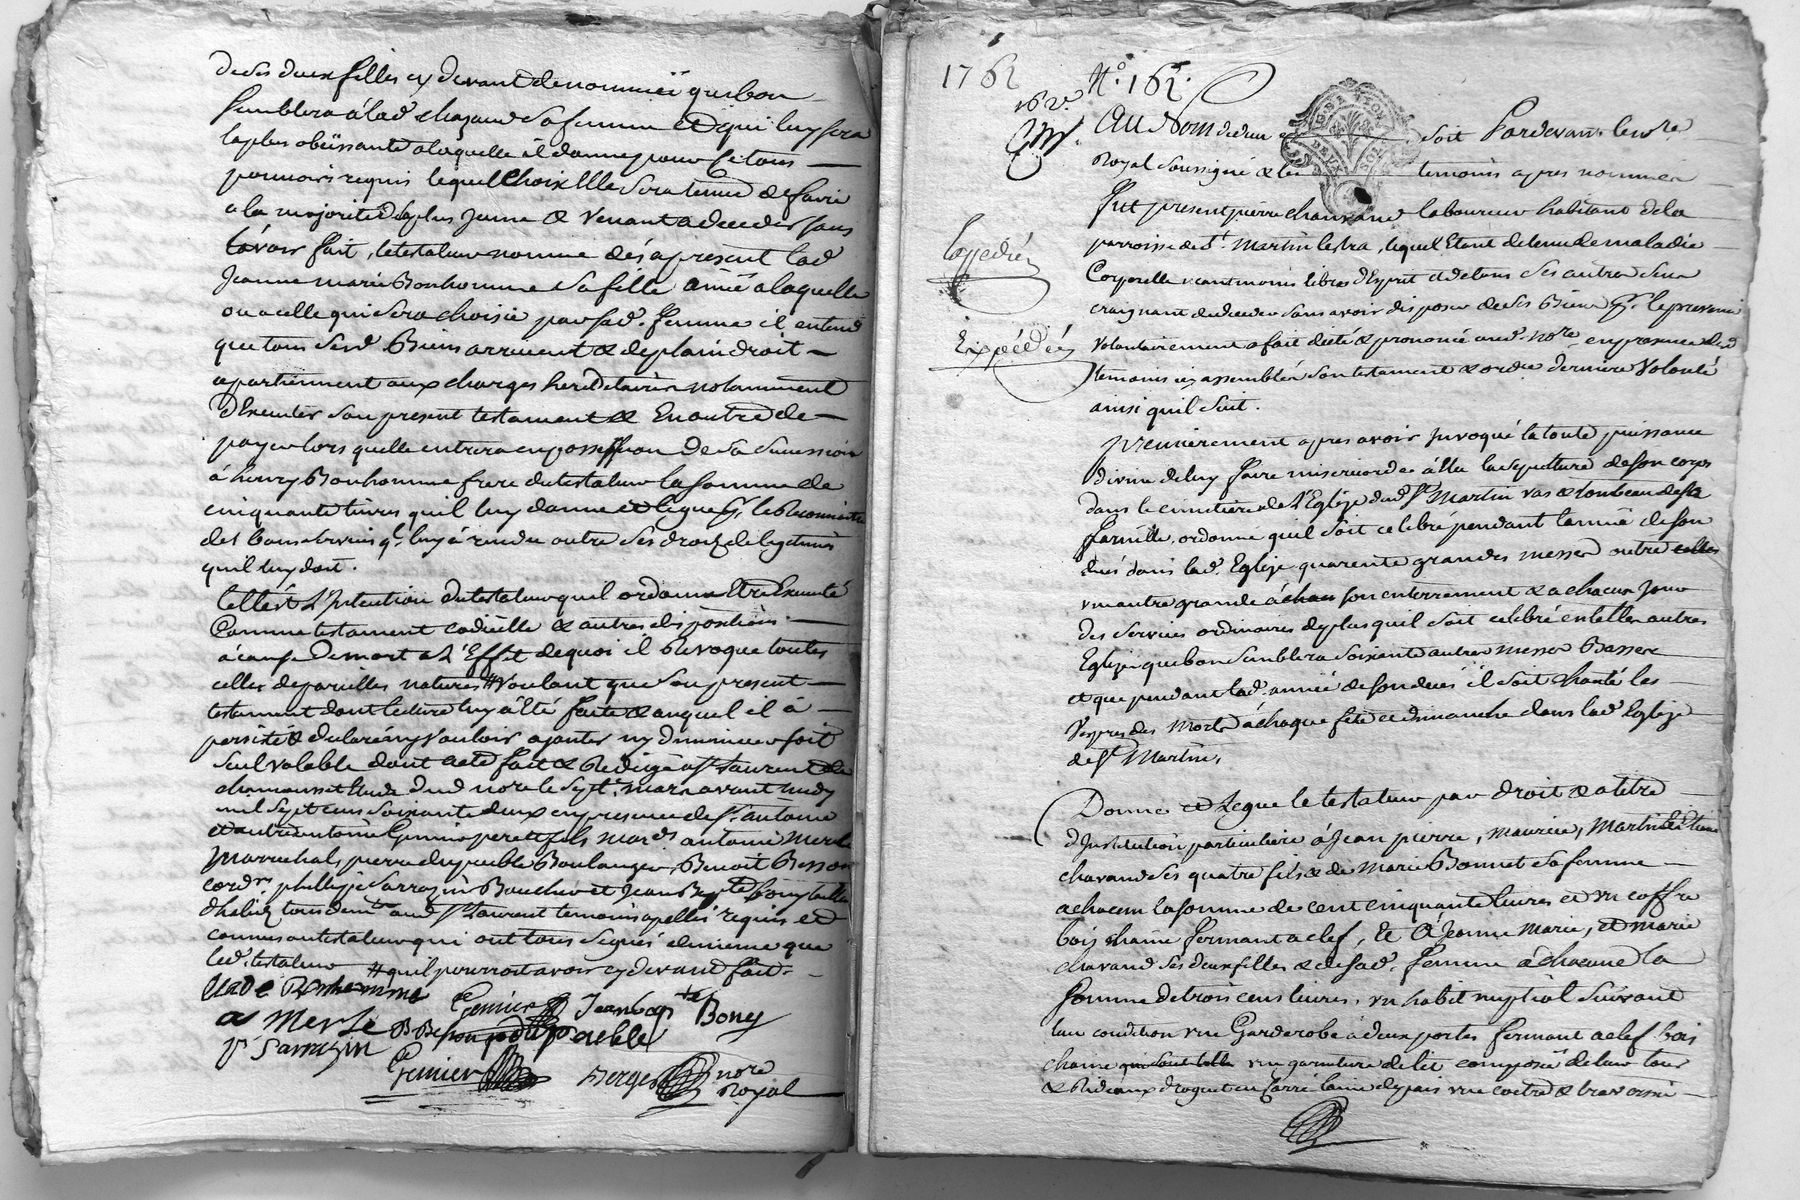 de ses deux filles cy devant denommeé que bon
semblera á lad. chazaud sa femme et qui luy sera
la plus obeissante a laquelle il donne pour ce tous
pouvoirs requis lequel choix Elle sera tenue de faire
a la majorité de la plus jeune & venant a deceder sans
lavoir fait, le testateur nomme dés a present lad
Jeanne marie Bonhomme sa fille ainée a laquelle
ou a celle qui sera choisie par sad. femme il entend
que tous sesd. Biens arrivent & de plain droit
apartiennent aux charges hereditaires notamment
d'Executer son present testament & En outre de
payer lors quelle entrera en possession de sa succession
á henry Bonhomme frere du testateur la somme de
cinquante livres qu'il luy donne et legue pr. le Reconnoitre
des bons services q'l luy á rendu outre ses droits de legitime
qu'il luy doit.
telle est L'Intention du testateur quil ordonne Etre Executé
Comme testament codicille & autres dispositions
á cause De mort a L'Effet de quoi il Revoque toutes
celles de pareilles natures # voulant que son present
testament dont lecture luy á été faite & auquel il á
persisté & declaré ny vouloir ajouter ny diminuer soit
seul valable dont acte fait & Redigé a St Laurent de
chamousset Etude dud nore le sept mars avant midy
mil sept cens soixante deux en presence de sr. antoine
et autre antoine Genier pere et fils mards antoine Merle
Marechal, pierre dupeuble Boulanger, Benoit Besson
cordr. philippe Sarrazin Boucher et Jean Bapte Bony tailleur
d'habits tous demts aud St Laurent temoins apellés requis et
connus au testateur qui ont tous signés de meme que
led. testateur # quil pourroit avoir cy devant fait.
Bonhomme
Genier Jean bapte Bony
a Merle B Besson p dupeuble
p Sarrazin
Genier Berger nore
Royal
1762 No. 162.
162e
AU Nom de dieu soit Pardevant le nore
Royal soussigné & les temoins apres nommés
Fut present pierre chavrand laboureur habitant de la
parroisse de St. Martin lestra, lequel Etant detenu de maladie
Corporelle neantmoins libre d'Esprit et de tous ses autres sens
craignant de deceder sans avoir disposer de ses Biens pr. le prevenir
volontairement a fait dicté & prononcé aud. nore en presence desd
temoins icy assemblés son testament & ordre derniere Volonté
ainsi quil suit.
Expedié
Expédiée
premierement apres avoir Invoqué la toute puissance
divine de luy faire misericorde á élu la sepulture de son corps
dans le cimetiere de L'Eglise dud St Martin vas & tombeau de sa
famille, ordonne quil soit celebré pendant lannée de son
decés dans lad. Eglise quarente grandes messes outre celles
une autre grande á chac son enterrement & a chacun jour
des services ordinaires deplus quil soit celebré en telles autres
Eglise que bon semblera soixante autres messes Basses
et que pendant lad. année de son decés il soit chanté les
Vespres des Morts á chaque fete et dimanche dans lad Eglise
de St Martin,
Donne et Legue le testateur par droit & a titre
d'Institution particuliere á Jean pierre, maurice, Martin
chavrand ses quatre fils & de Marie Bonnet sa femme
a chacun la somme de cent cinquante livres et un coffre
bois chaine fermant a clef, Et A Jeanne Marie, et marie
chavrand ses deux filles & de sad. femme á chacune la
somme de trois cens livres, un habit nuptial suivant
leur condition une Garderobe á deux portes fermant a clef bois
chaine qui sont telle une garniture de lit composée de leur tour
& Rideaux droguet en Carré laine de pais une coetre & traversin